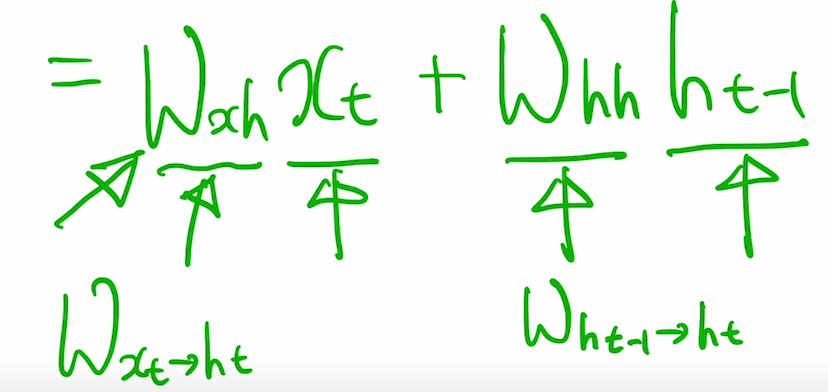 = W_xh x_t + W_hh h_t-1
W_xt→ht W_ht-1→ht